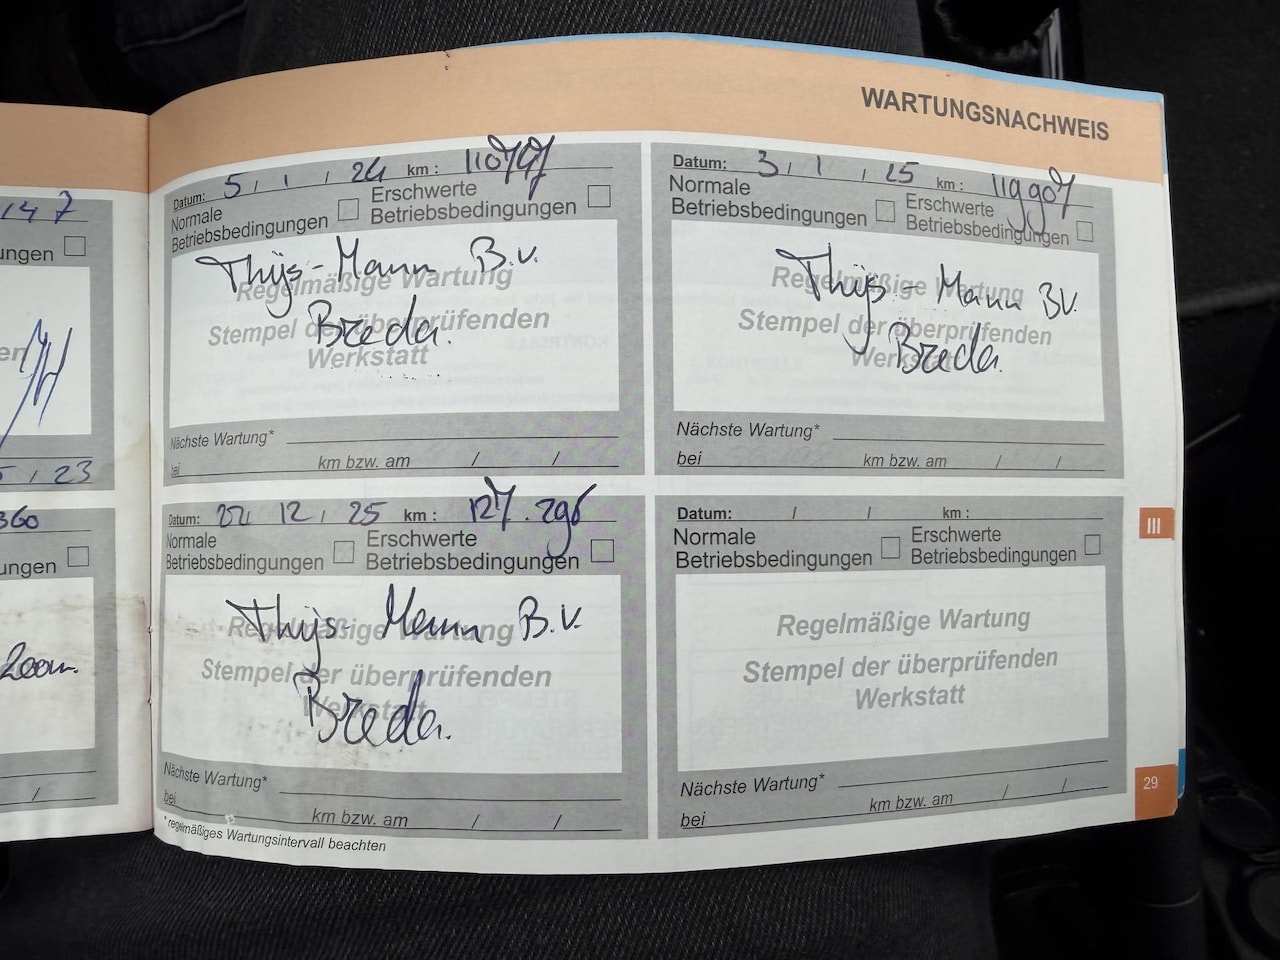 WARTUNGSNACHWEIS
147
ungen
5 / 23
360
ungen
Datum: 5 / 1 / 24 km : 110797
Normale Betriebsbedingungen
Erschwerte Betriebsbedingungen
Regelmäßige Wartung
Stempel der überprüfenden
Werkstatt
Thijs-Mann B.V.
Breda.
Nächste Wartung*
bei km bzw. am / /
Datum: 3 / 1 / 25 km : 119907
Normale Betriebsbedingungen
Erschwerte Betriebsbedingungen
Regelmäßige Wartung
Stempel der überprüfenden
Werkstatt
Thijs-Mann BV.
Breda.
Nächste Wartung*
bei km bzw. am / /
Datum: 12 / 25 km : 127.296
Normale Betriebsbedingungen
Erschwerte Betriebsbedingungen
Regelmäßige Wartung
Stempel der überprüfenden
Werkstatt
Thijs Mann B.V.
Breda.
Nächste Wartung*
bei km bzw. am / /
* regelmäßiges Wartungsintervall beachten
Datum: / / km :
Normale Betriebsbedingungen
Erschwerte Betriebsbedingungen
Regelmäßige Wartung
Stempel der überprüfenden
Werkstatt
Nächste Wartung*
bei km bzw. am / /
III
29